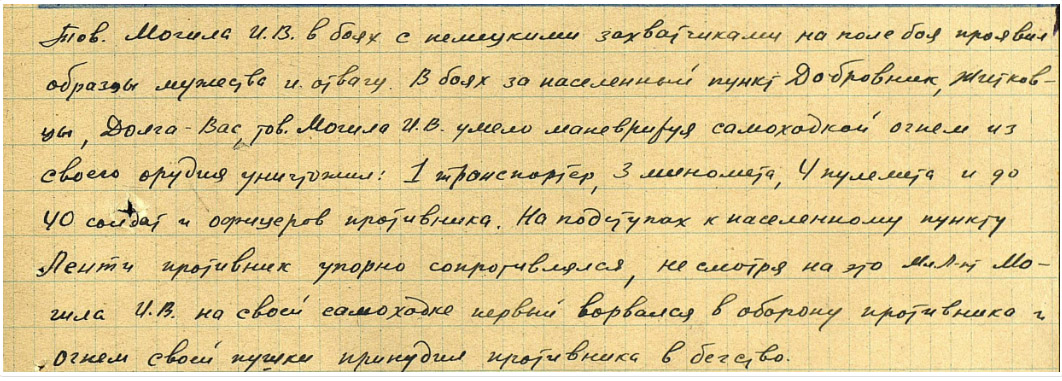 Тов. Могила И.В. в боях с немецкими захватчиками на поле боя проявил
образцы мужества и отвагу. В боях за населенный пункт Добровник, Житков-
цы, Долга-Вас, тов. Могила И.В. умело маневрируя самоходкой огнем из
своего орудия уничтожил: 1 транспортер, 3 миномета, 4 пулемета и до
40 солдат и офицеров противника. На подступах к населенному пункту
Ленти противник упорно сопротивлялся, не смотря на это мл л-нт Мо-
гила И.В. на своей самоходке первый ворвался в оборону противника и
огнем своей пушки принудил противника в бегство.